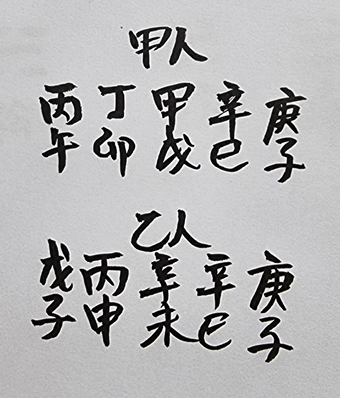 甲人
丙 丁 甲 辛 庚
午 卯 戌 巳 子
乙人
戊 丙 辛 辛 庚
子 申 未 巳 子